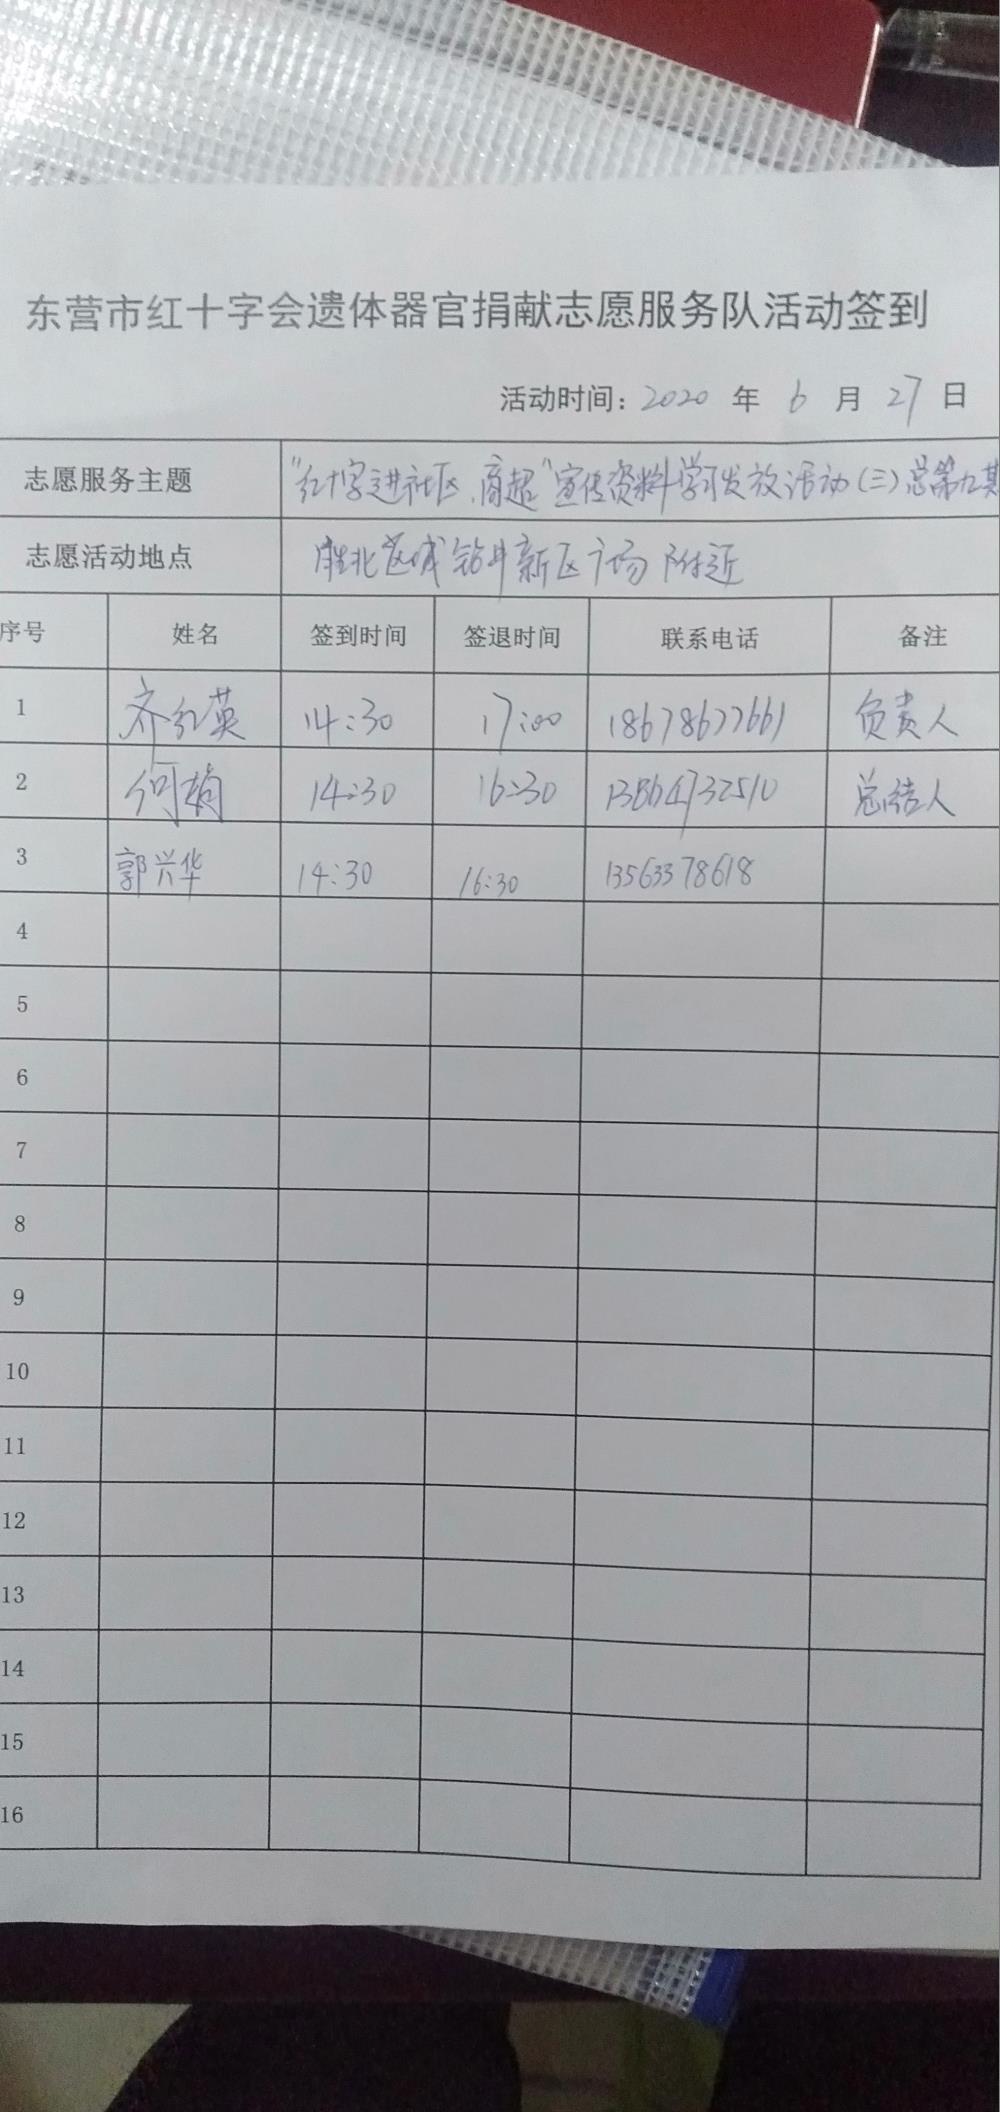 东营市红十字会遗体器官捐献志愿服务队活动签到
活动时间：2020 年 6 月 27 日
志愿服务主题 "红十字进社区、商超"宣传资料学习发放活动(三)总第九期
志愿活动地点 胜北区域钻井新区广场附近
序号 姓名 签到时间 签退时间 联系电话 备注
1 齐红英 14:30 17:00 18678677661 负责人
2 何楠 14:30 16:30 13864732510 总结人
3 郭兴华 14:30 16:30 13563378618
4
5
6
7
8
9
10
11
12
13
14
15
16